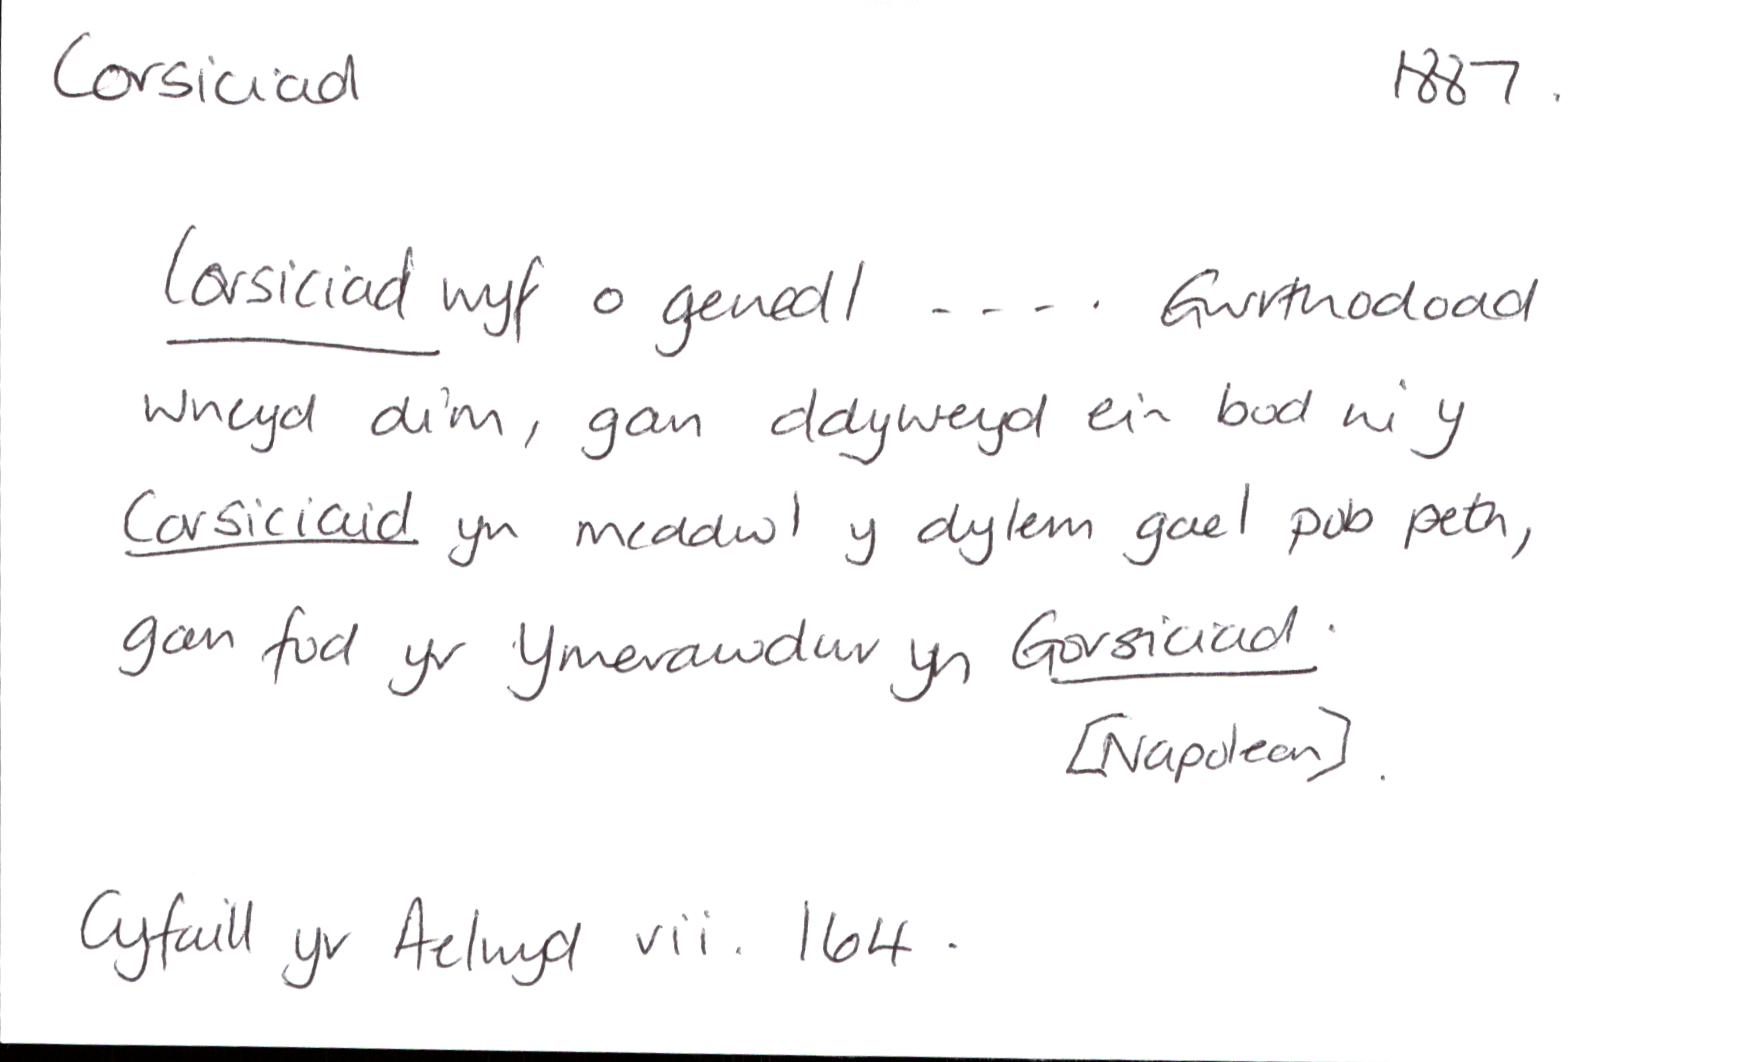 Corsiciad 1887.
Corsiciad wyf o genedl ----. Gwrthododd
wneyd dim, gan ddyweyd ein bod ni y
Corsiciaid yn meddwl y dylem gael pob peth,
gan fod yr Ymerawdwr yn Gorsiciad.
[Napoleon].
Cyfaill yr Aelwyd vii. 164.